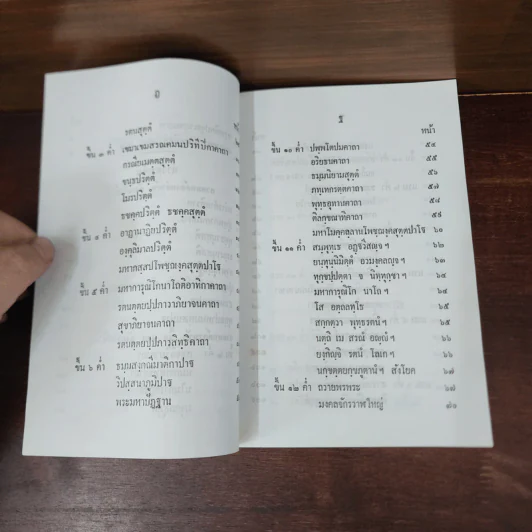 ฏ
รตนสุตฺตํ
ขึ้น ๓ ค่ำ เขมาเขมสรณคมนปริทีปิกาคาถา
กรณียเมตฺตสุตฺตํ
ขนฺธปริตฺตํ
โมรปริตฺตํ
ธชคฺคปริตฺตํ ธชคฺคสุตฺตํ
ขึ้น ๔ ค่ำ อาฏานาฏิยปริตฺตํ
องฺคุลิมาลปริตฺตํ
ขึ้น ๕ ค่ำ มหาการุณิโกนาโถติอาทิกาคาถา
รตนตฺตยปฺปภาวาภิยาจนคาถา
สุขาภิยาจนคาถา
รตนตฺตยปฺปภาวสิทฺธิคาถา
ขึ้น ๖ ค่ำ ธมฺมสงฺคณีมาติกาปาฐ
วิปสฺสนาภูมิปาฐ
พระมหาปัฏฐาน
ฐ
หน้า
ขึ้น ๑๐ ค่ำ ปพฺพโตปมคาถา ๕๔
อริยธนคาถา ๕๕
ธมฺมนิยามสุตฺตํ ๕๖
ภทฺเทกรตฺตคาถา ๕๗
พุทฺธอุทานคาถา ๕๘
ติลกฺขณาทิคาถา ๕๙
มหาโมคฺคลฺลานโพชฺฌงฺคสุตฺตปาโฐ ๖๐
ขึ้น ๑๑ ค่ำ สมฺพุทฺเธ อฏฺฐวีสญฺจ ฯ ๖๒
ยนฺทุนฺนิมิตฺตํ อวมงฺคลญฺจ ฯ ๖๓
ทุกฺขปฺปตฺตา จ นิทฺทุกฺขา ฯ
มหาการุณิโก นาโถ ฯ
โส อตฺถลทฺโธ ๖๕
สกฺกตฺวา พุทฺธรตนํ ฯ ๖๕
นตฺถิ เม สรณํ อญฺญํ ฯ
ยงฺกิญฺจิ รตนํ โลเก ฯ
นกฺขตฺตยกฺขภูตานํ ฯ
ขึ้น ๑๒ ค่ำ ถวายพรพระ ๖๗
มงคลจักรวาฬใหญ่ ๗๐